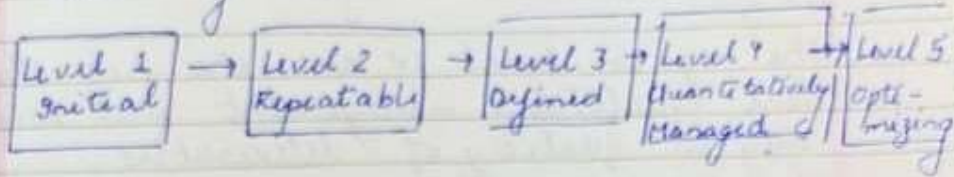 Level 1
Initial
Level 2
Repeatable
Level 3
Defined
Level 4
Quantitatively
Managed
Level 5
opti-
mizing